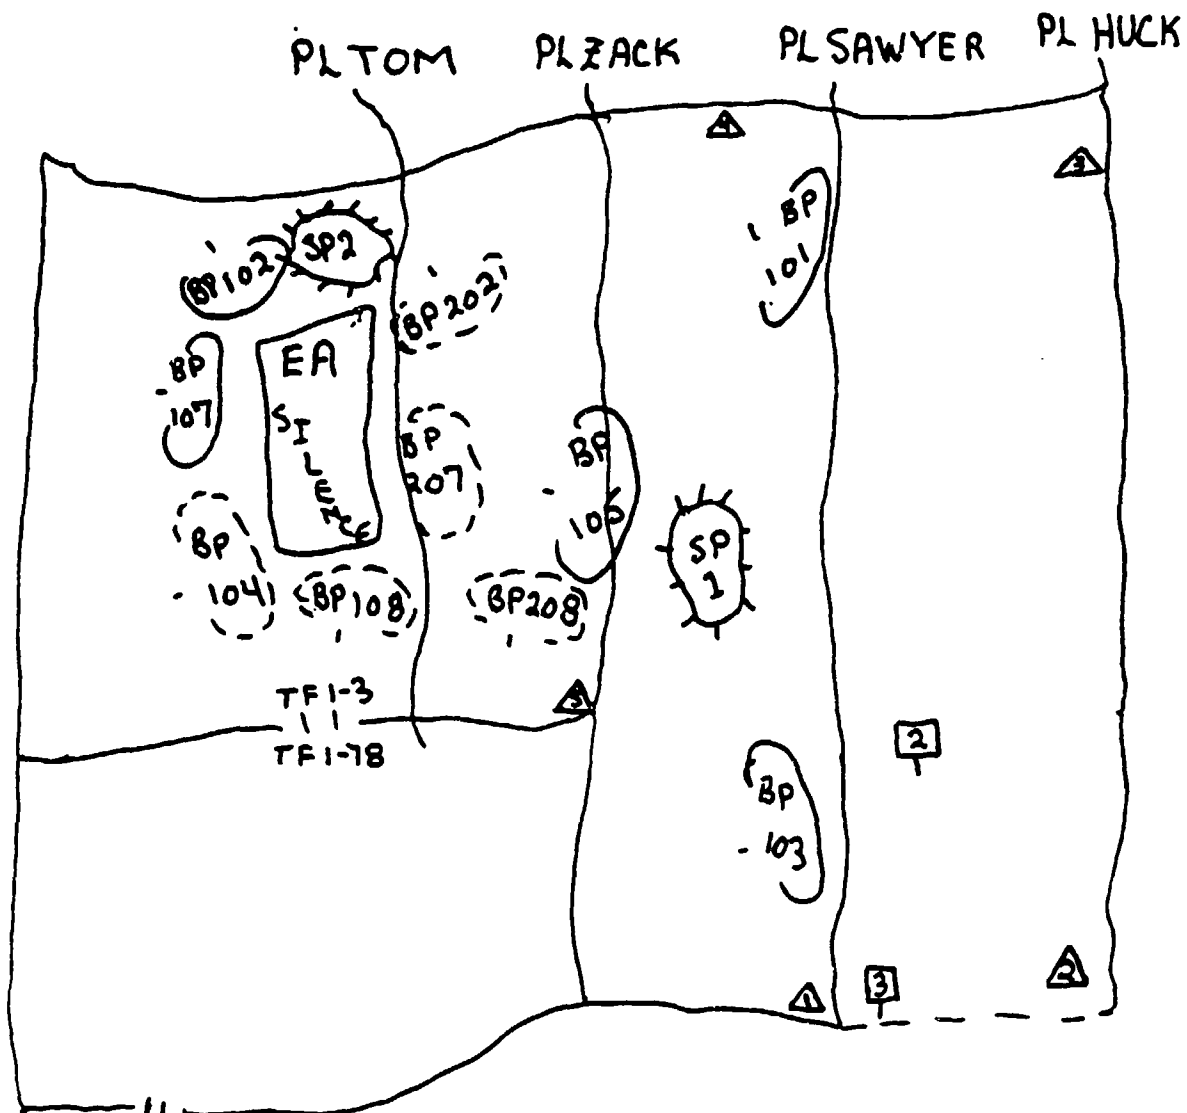 PL TOM
PL ZACK
PL SAWYER
PL HUCK
4
3
BP
101
SP2
BP102
BP202
EA
SILENCE
BP
107
BP
207
BP
SP
1
BP
104
BP108
BP208
TF1-3
TF1-78
2
BP
103
3
2
1